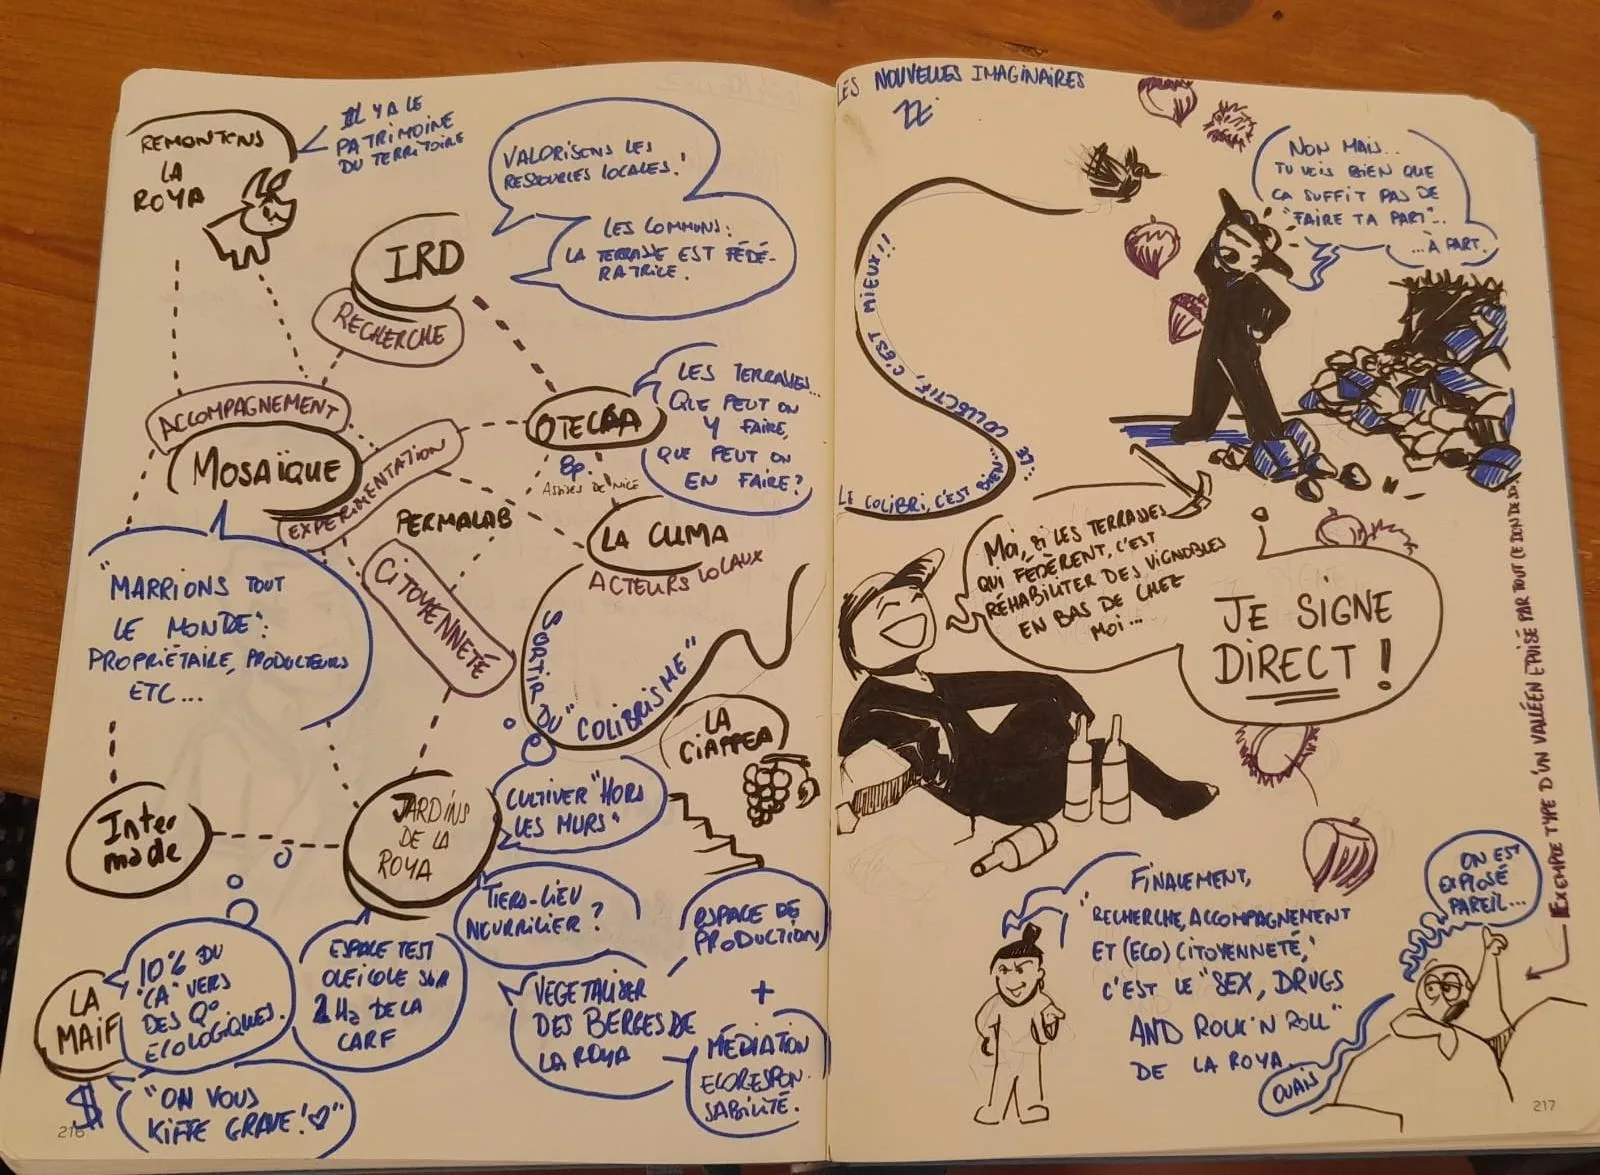 REMONTONS
LA
ROYA
IL Y A LE
PATRIMOINE
DU TERRITOIRE
VALORISONS LES
RESSOURCES LOCALES!
LES COMMUNS:
LA TERRASSE EST FÉDÉ-
RATRICE.
IRD
RECHERCHE
ACCOMPAGNEMENT
MOSAÏQUE
EXPERIMENTATION
PERMALAB
CITOYENNETÉ
OTECCA
Ep.
ASSISES DE NICE
LES TERRASSES...
QUE PEUT ON
Y FAIRE,
QUE PEUT ON
EN FAIRE?
LA CUMA
ACTEURS LOCAUX
"MARRIONS TOUT
LE MONDE":
PROPRIÉTAIRE, PRODUCTEURS
ETC...
SORTIR DU "COLIBRISME"
LA
CIAPPEA
Inter
made
JARDINS
DE LA
ROYA
CULTIVER "HORS
LES MURS"
TIERS-LIEU
NOURRICIER?
ESPACE DE
PRODUCTION
+
MÉDIATION
ECORESPON-
SABILITÉ.
VEGETALISER
DES BERGES DE
LA ROYA
ESPACE TEST
OLEICOLE SUR
2 Ha DE LA
CARF
LA
MAIF
10% DU
"CA" VERS
DES Q°
ECOLOGIQUES.
$
"ON VOUS
KIFFE GRAVE! ♡"
216
LES NOUVELLES IMAGINAIRES
LE COLIBRI, C'EST BIEN... LE COLLECTIF, C'EST MIEUX!!
NON MAIS...
TU VOIS BIEN QUE
ÇA SUFFIT PAS DE
"FAIRE TA PART"...
...À PART.
MOI, SI LES TERRASSES
QUI FÉDÉRENT, C'EST
RÉHABILITER DES VIGNOBLES
EN BAS DE CHEZ
MOI...
JE SIGNE
DIRECT!
FINALEMENT,
"RECHERCHE, ACCOMPAGNEMENT
ET (ECO) CITOYENNETÉ,"
C'EST LE "SEX, DRUGS
AND ROCK'N ROLL"
DE LA ROYA
ON EST
EXPLOSÉ
PAREIL...
OUAIS
EXEMPLE TYPE D'UN VALLÉEN EPUISÉ PAR TOUT CE DON DE SOI.
217